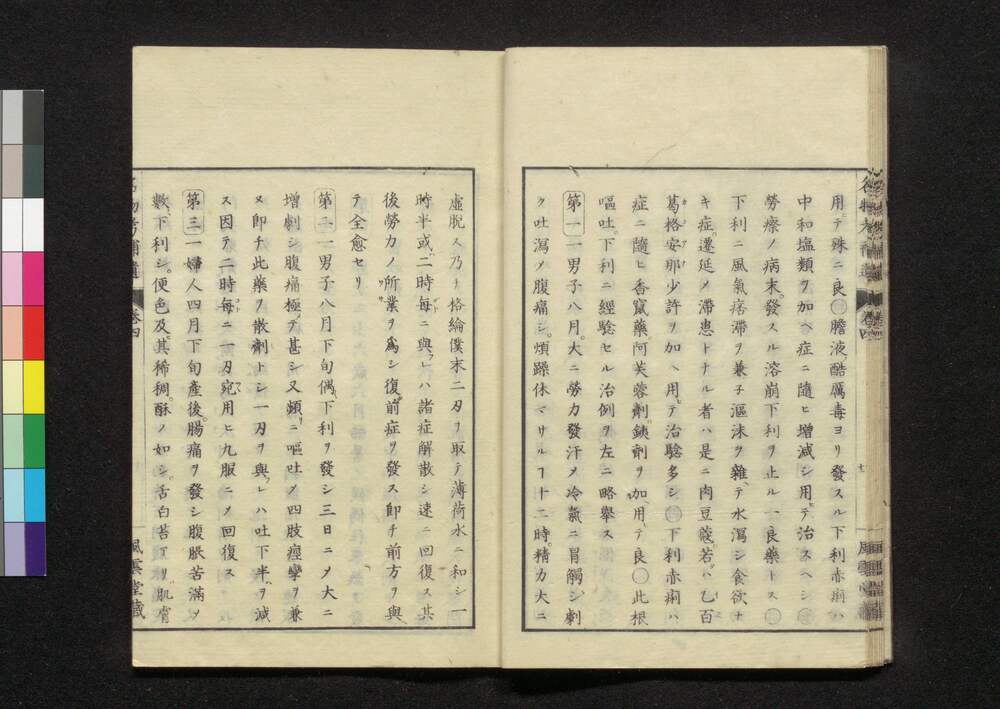 用テ殊ニ良〇膽液酷厲毒ヨリ發スル下利赤痢ハ
中和塩類ヲ加ヘ症ニ隨ヒ増減シ用テ治スヘシ〇
勞療ノ病末發スル溶崩下利ヲ止ル一良藥トス〇
下利ニ風氣痞滞ヲ兼子漚沫ヲ雜テ水瀉シ食欲ナ
キ症遷延メ滞患トナル者ハ是ニ肉豆蔲若ハ乙百
葛格安那少許ヲ加ヘ用テ治驗多シ〇下利赤痢ハ
症ニ隨ヒ香竄藥阿芙蓉劑鐵劑ヲ加用テ良〇此根
嘔吐下利ニ經驗セル治例ヲ左ニ略擧ス
第一 一男子八月大ニ勞力發汗メ冷氣ニ冒觸シ劇
ク吐瀉メ腹痛シ煩躁休マサルヿ十二時精力大ニ
虚脱ス乃チ格綸僕末二刃ヲ取テ薄荷水ニ和シ一
時半或二時毎ニ與レハ諸症解散シ速ニ回復ス其
後勞力ノ所業ヲ爲シ復前症ヲ發ス即チ前方ヲ與
テ全愈セリ
第二 一男子八月下旬偶下利ヲ發シ三日ニメ大ニ
増劇シ腹痛極テ甚シ又頻ニ嘔吐メ四肢痙攣ヲ兼
ヌ即チ此藥ヲ散劑トシ一刃ヲ與レハ吐下半ヲ減
ス因テ二時毎ニ一刃宛用ヒ九服ニメ回復ス
第三 一婦人四月下旬産後腸痛ヲ發シ腹脹苦滿メ
數下利シ便色及其稀稠酥ノ如シ舌白苔アリ肌膚
名物考補遺 卷四
風雲堂藏
七